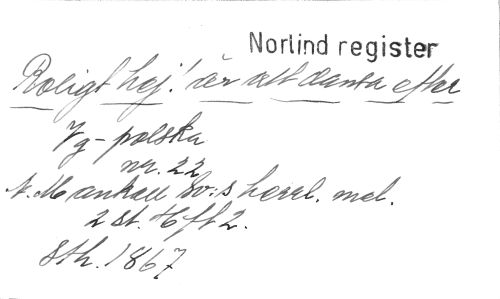 Norlind register
Roligt hej! är att dansa efter
Vg-polska
nr. 22
A. Mankell Sv:s herrl. mel.
2 st. Hft 2.
Sth. 1867